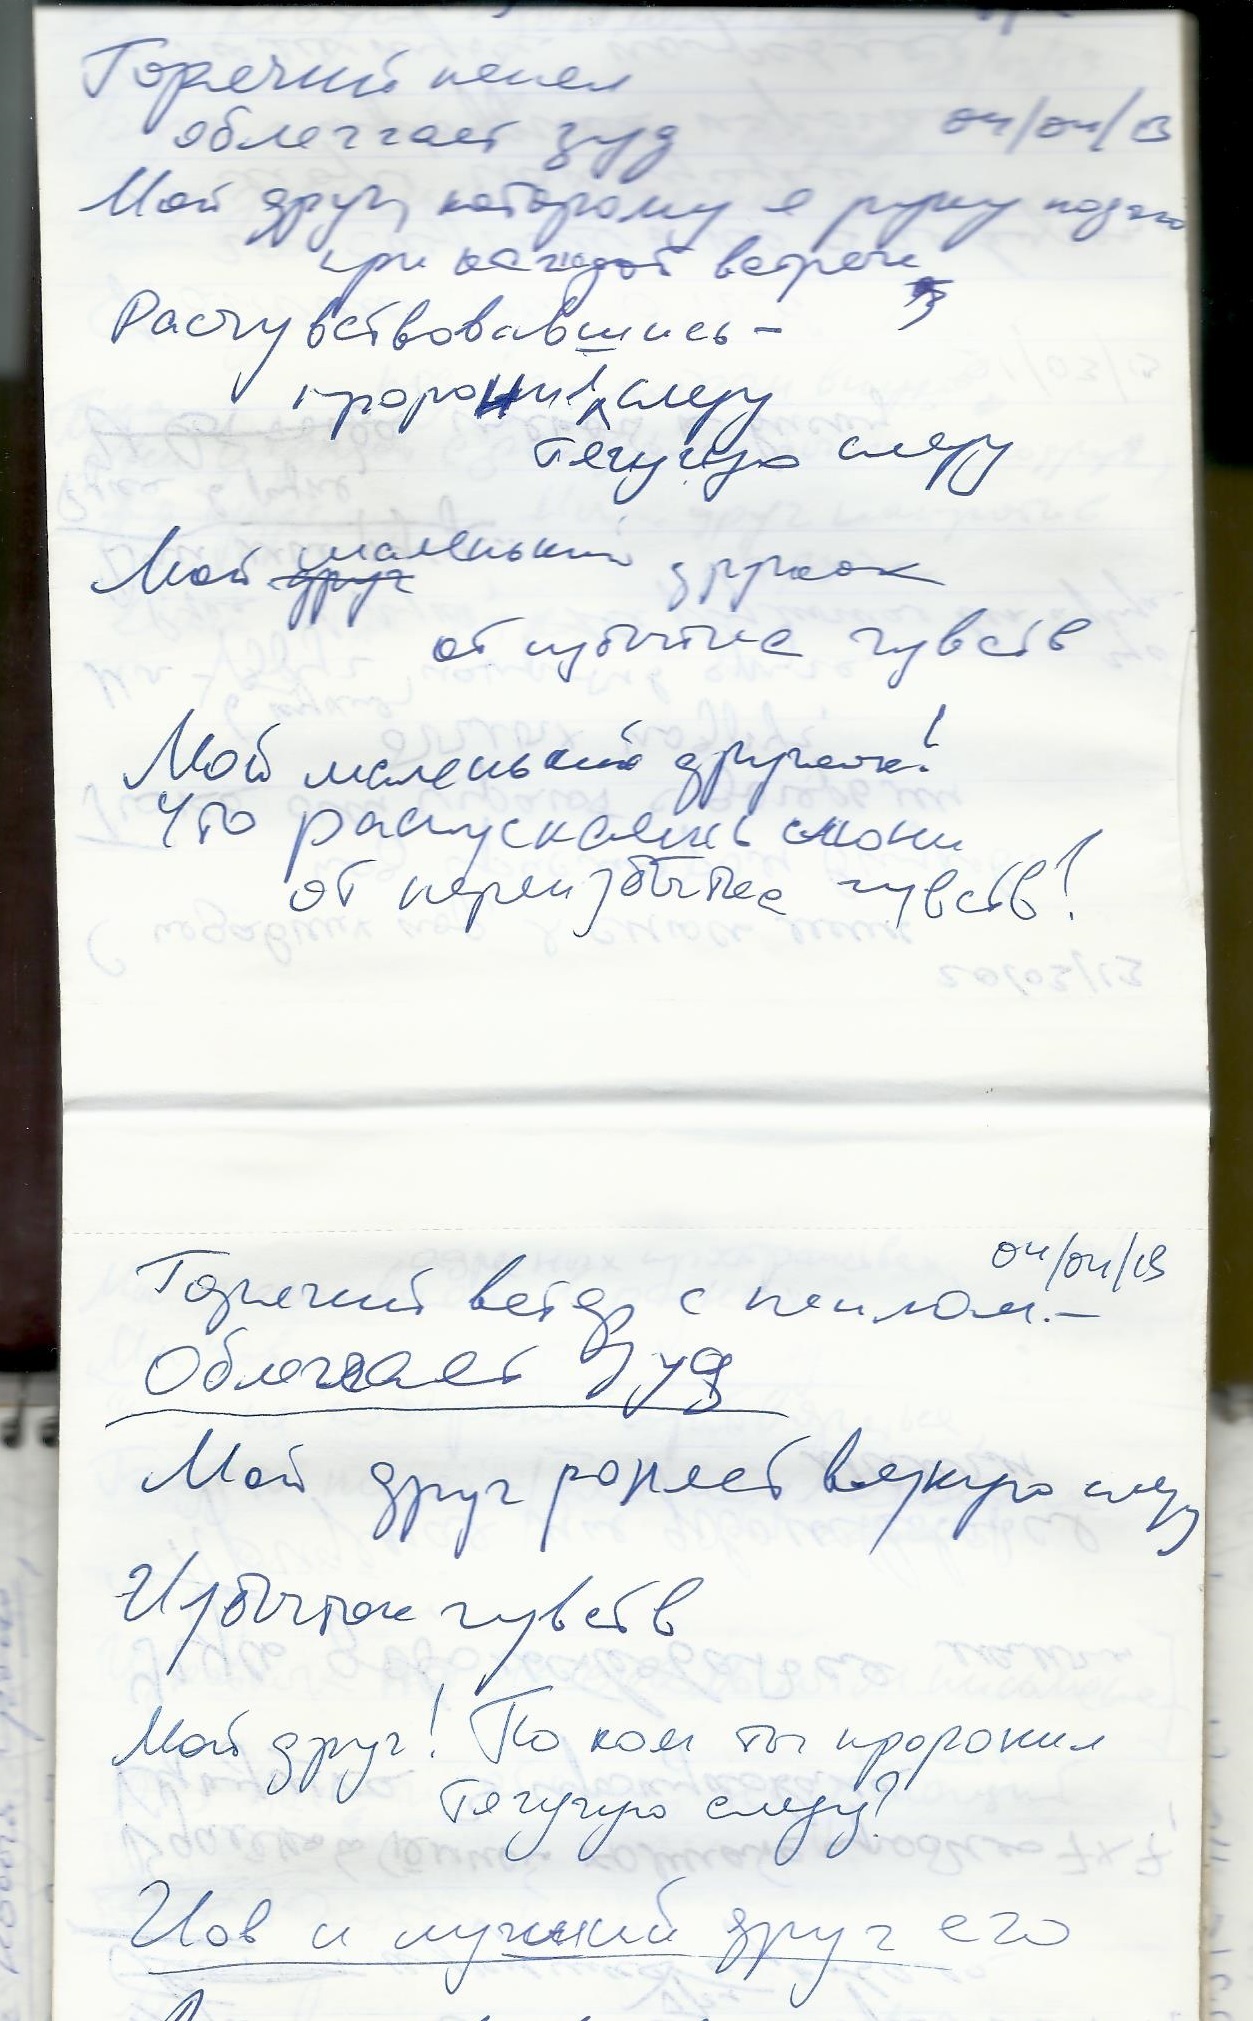 Горячий пепел
облегчает зуд
04/04/13
Мой друг, которому я руку подаю
при каждой встрече
Расчувствовавшись -
проронил слезу
тягучую слезу
Мой друг маленький дружок
от избытка чувств
Мой маленький дружок!
Что распускаешь слюни
от переизбытка чувств!
04/04/13
Горячий ветер с пеплом. -
Облегчает зуд
Мой друг роняет вязкую слезу
Избыток чувств
Мой друг! По ком ты проронил
тягучую слезу?
Иов и лучший друг его